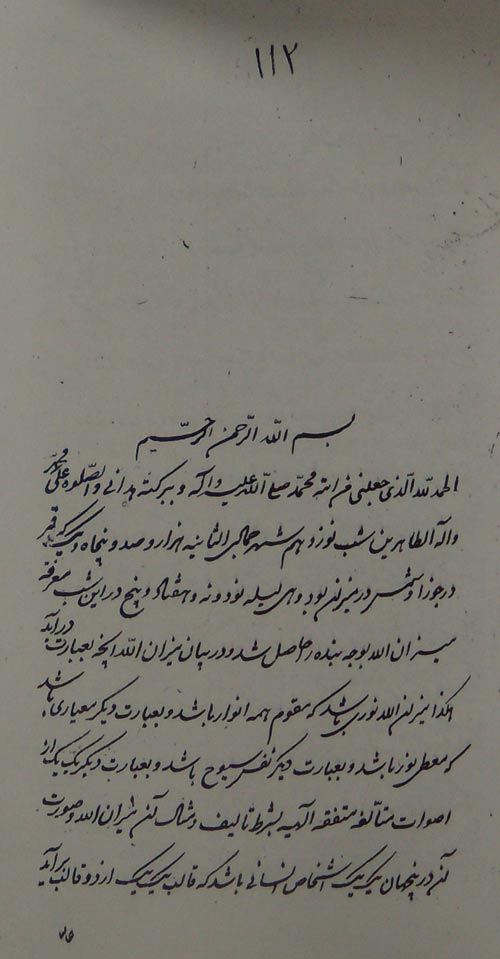 ۱۱۲
بسم الله الرحمن الرحیم
الحمد لله الذی جعلنی من امة محمد صلی الله علیه و آله و ببرکته هدانی والصلوة علی محمد
و آله الطاهرین شب نوزدهم شهر جمادی الثانیه هزار و صد و پنجاه و یک که قمر
در جوزا و شمس در میزان بود و هی لیله نود و نه و هفتاد و پنج در این شب معرفة
میزان الله بوجه بنده را حاصل شد و در بیان میزان الله آنچه بعبارت در آید
هکذا میزان الله نوری باشد که مقوم همه انوار باشد و بعبارت دیگر معیاری باشد
که معطی نور باشد و بعبارت دیگر نفس سبوح باشد و بعبارت دیگر یک یک از
اصوات متألفه متفقه الهیه بشرط تألیف و مثال آن میزان الله و صورت
آن در پنجهان یک یک اشخاص انسانی باشد که قالب یک یک از ذو قالب برآید